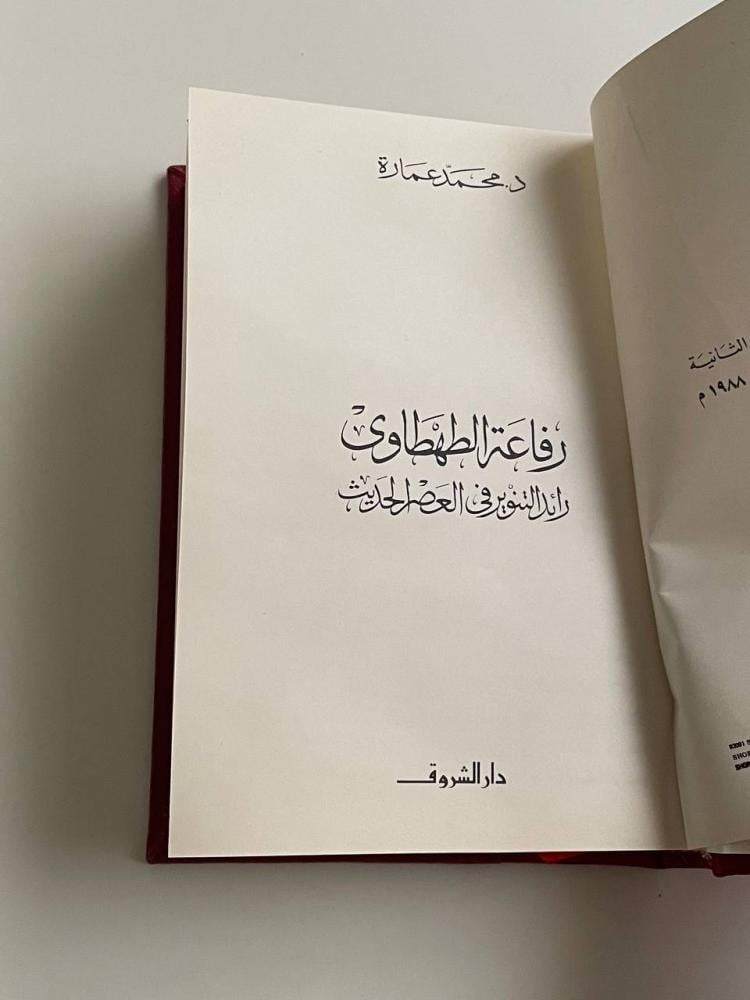 د. محمّد عمارة
رفاعة الطهطاوى
رائد التنوير فى العصر الحديث
دار الشروق
الثانية
١٩٨٨ م